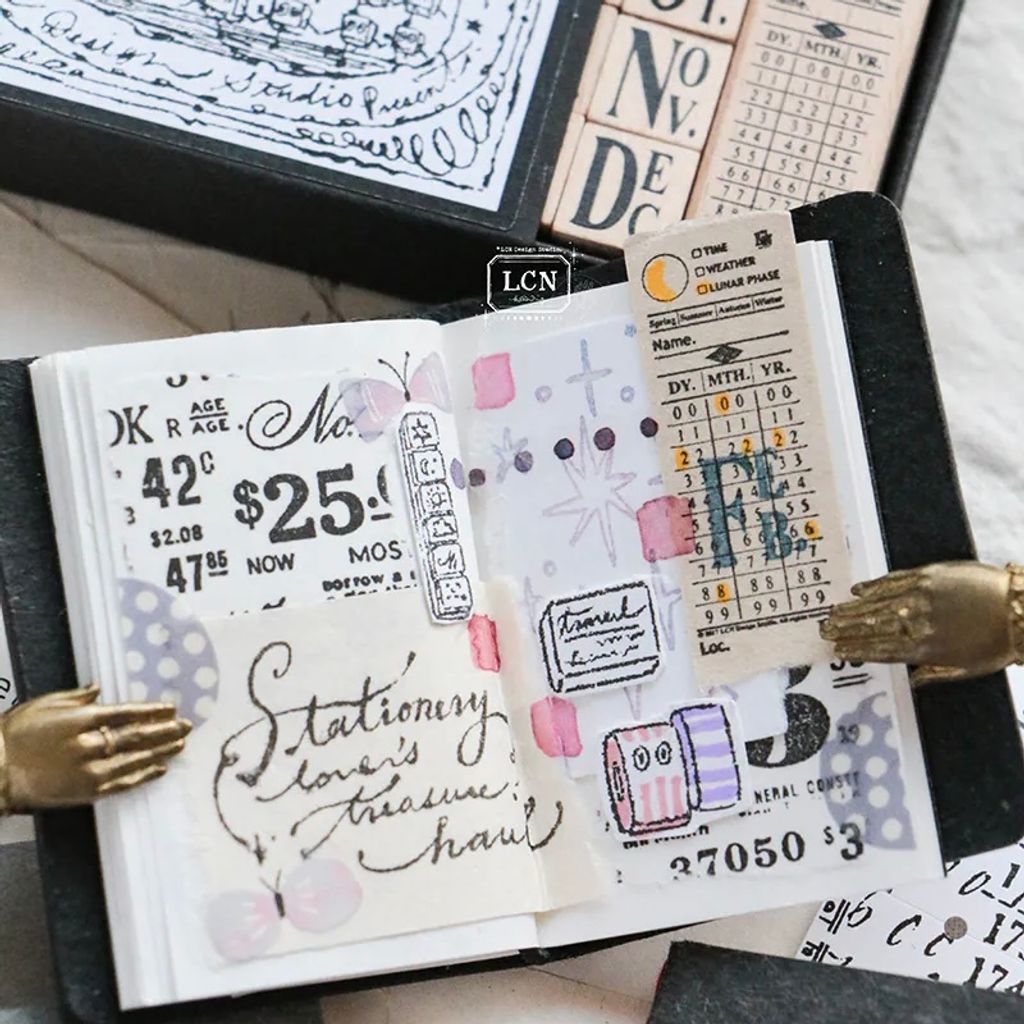 Design Studio Present
NOV.
DEC
DY. MTH. YR.
00 00 00
11 11 11
22 22 22
33 33 33
44 44 44
55 55 55
66 66 66
77 77
88
*LCN Design Studio
LCN
TIME
WEATHER
LUNAR PHASE
Spring Summer Autumn Winter
Name.
DY. MTH. YR.
00 00 00
11 11 11
22 22 22
33 33 33
44 44 44
55 55 55
66 66 66
77 77 77
88 88 88
99 99 99
FEB.
Loc.
OK R AGE AGE. No.
42¢
$25.
$2.08
47 85 NOW MOS
BORROW &
Stationery
lover's
treasure
haul
travel
3
NERAL CONST
37050 $3